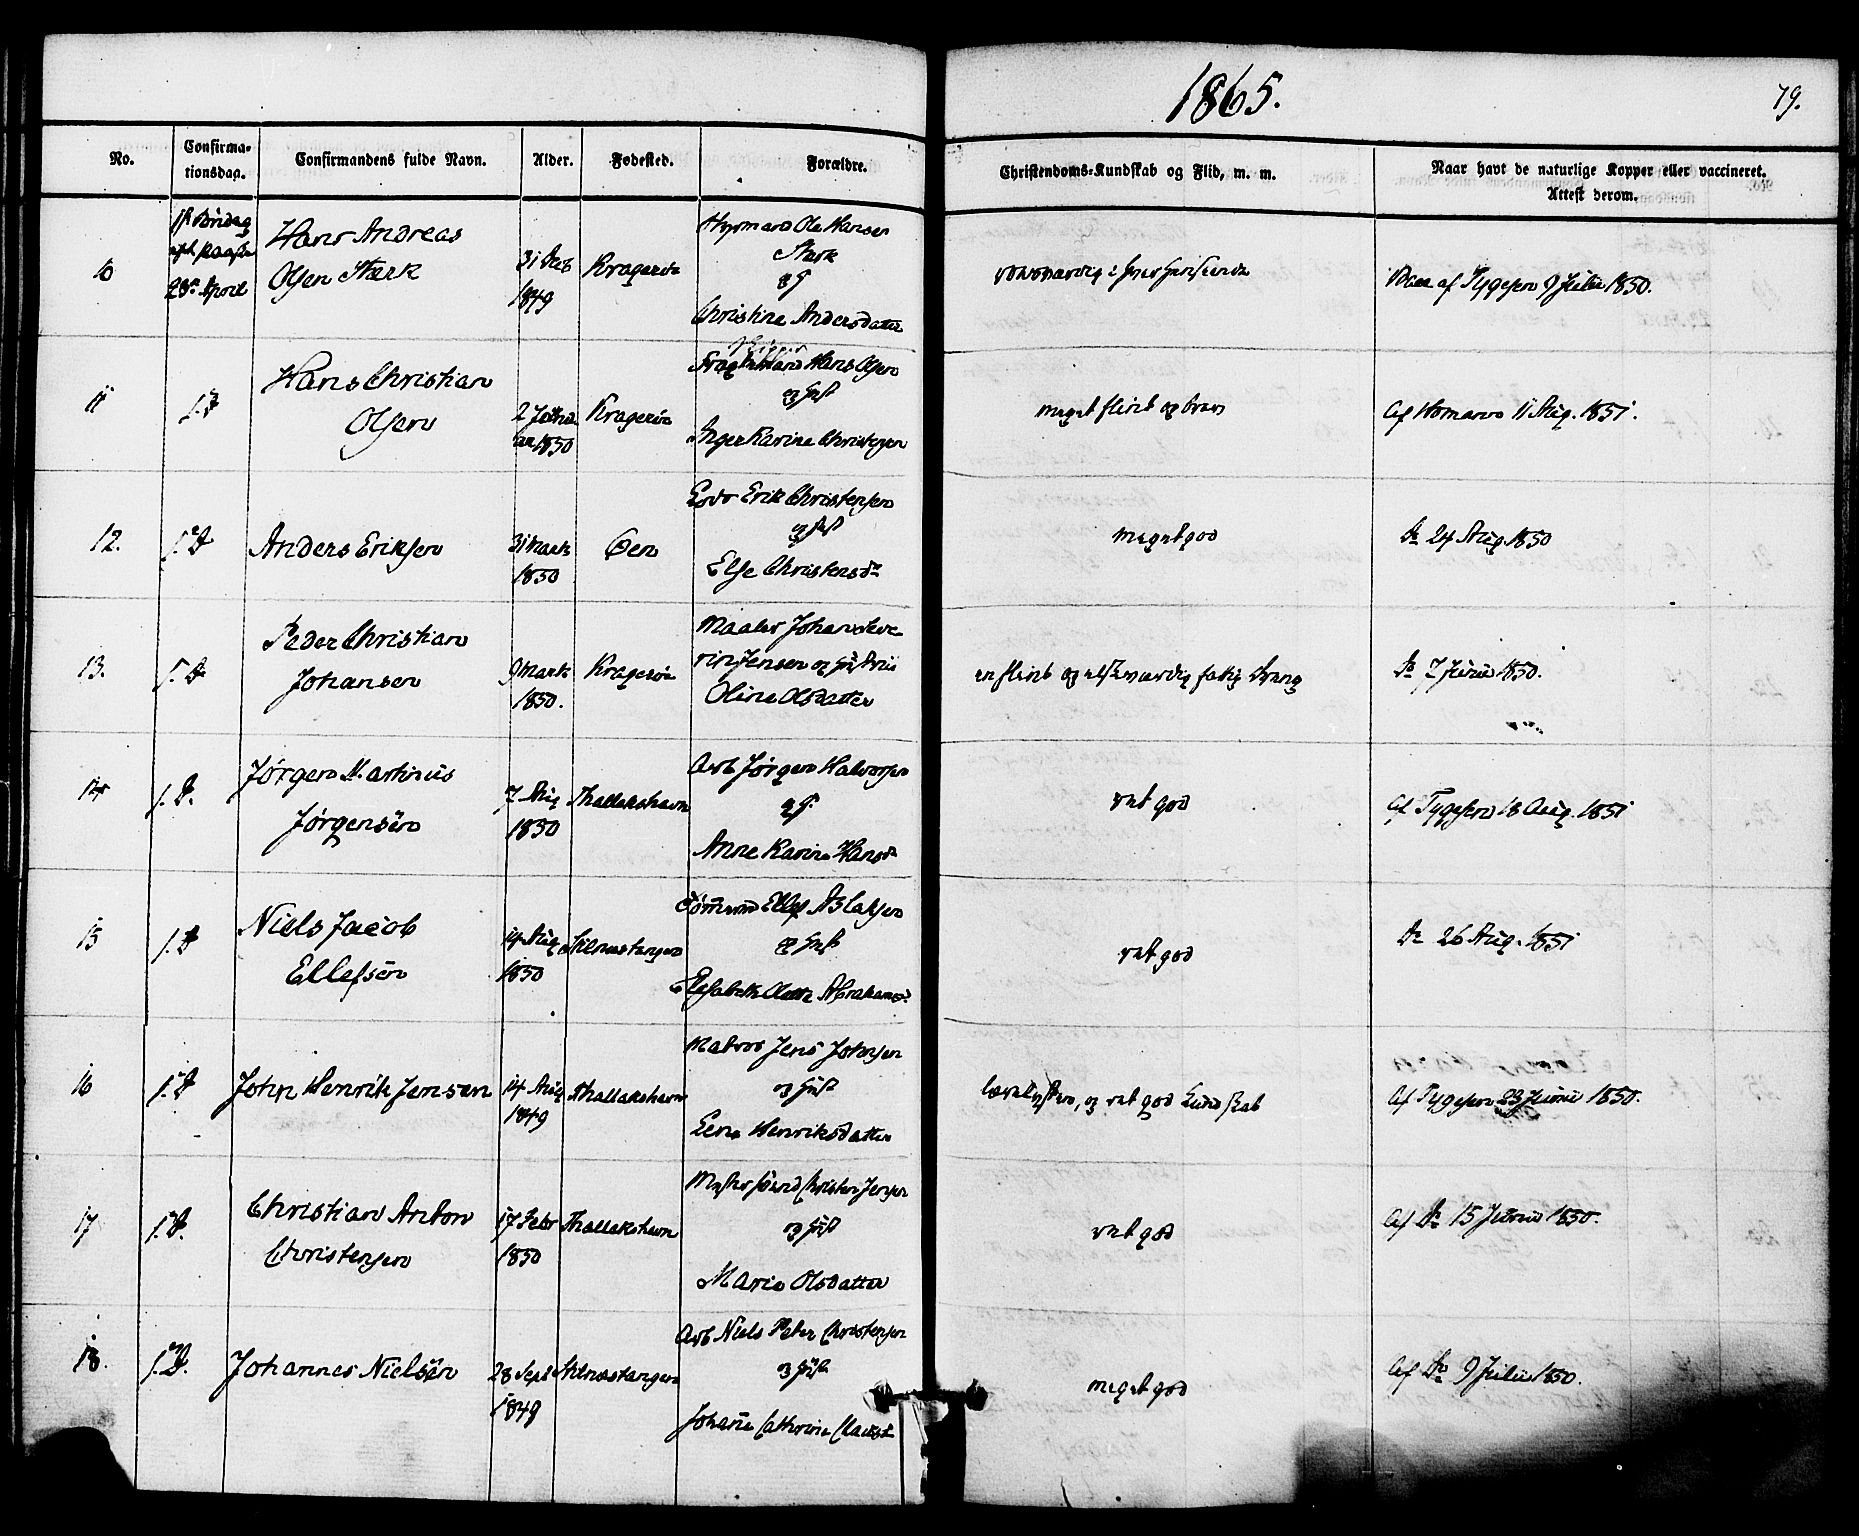 1865.
79.
No.
Confirma-
tionsdag.
Confirmandens fulde Navn.
Alder.
Fødested.
Forældre.
Christendoms-Kundskab og Flid, m. m.
Naar havt de naturlige Kopper eller vaccineret.
Attest derom.
10
23de April
Hans Andreas
Olsen Stærk
31 Dec
1849
Kragerøe
Ole Hansen
Stærk
og
Christine Andersdatter
af Tygesen 9 Julii 1850.
11
1. D
Hans Christian
Olsen
2 Janu
ar 1850
Kragerøe
Hans Olsen
og Hust
Inger Karine Christensen
meget flink og brav
af Homann 11 Aug. 1851.
12.
1. D
Anders Eriksen
31 Marts
1850
Øen
Erik Christensen
og Hust
Else Christensdr
meget god
Do 24 Aug 1850
13.
1. D
Peder Christian
Johansen
9 Marts
1850.
Kragerøe
Maaler Johan Seve
rin Jensen og Hustru
Oline Olsdatter
en flink og elskværdig fattig Dreng
Do 7 Junii 1850.
14
1. D.
Jørgen Martinus
Jørgensen
7 Aug
1850
Thallakshavn
Arb Jørgen Halvorsen
og
Anne Karine Hansdr
ret god
af Tygesen 18 Aug. 1851
15
1. D
Niels Jacob
Ellefsen
14 Aug
1850
Stilnestangen
Tømmermd Ellef Aslaksen
og Hust
Elisabeth Olette Abrahamsdr
ret god
Do 26 Aug. 1851
16
1. D
John Henrik Jensen
14 Aug
1849
Thallakshavn
Matros Jens Johnsen
og Hust
Lene Henriksdatter
lærelysten, og ret god Kundskab
af Tygesen 23 Junii 1850.
17
1. D.
Christian Anton
Christensen
17 Febr
1850
Thallakshavn
Christen Jensen
og Hust
Marie Olsdatter
ret god
af Do 15 Junii 1850.
18.
1. D.
Johannes Nielsen
28 Sept
1849
Stilnestangen
Arb Niels Peter Christensen
og Hust
Johanne Cathrine Clausdr
meget god
af Do 9 Julii 1850.